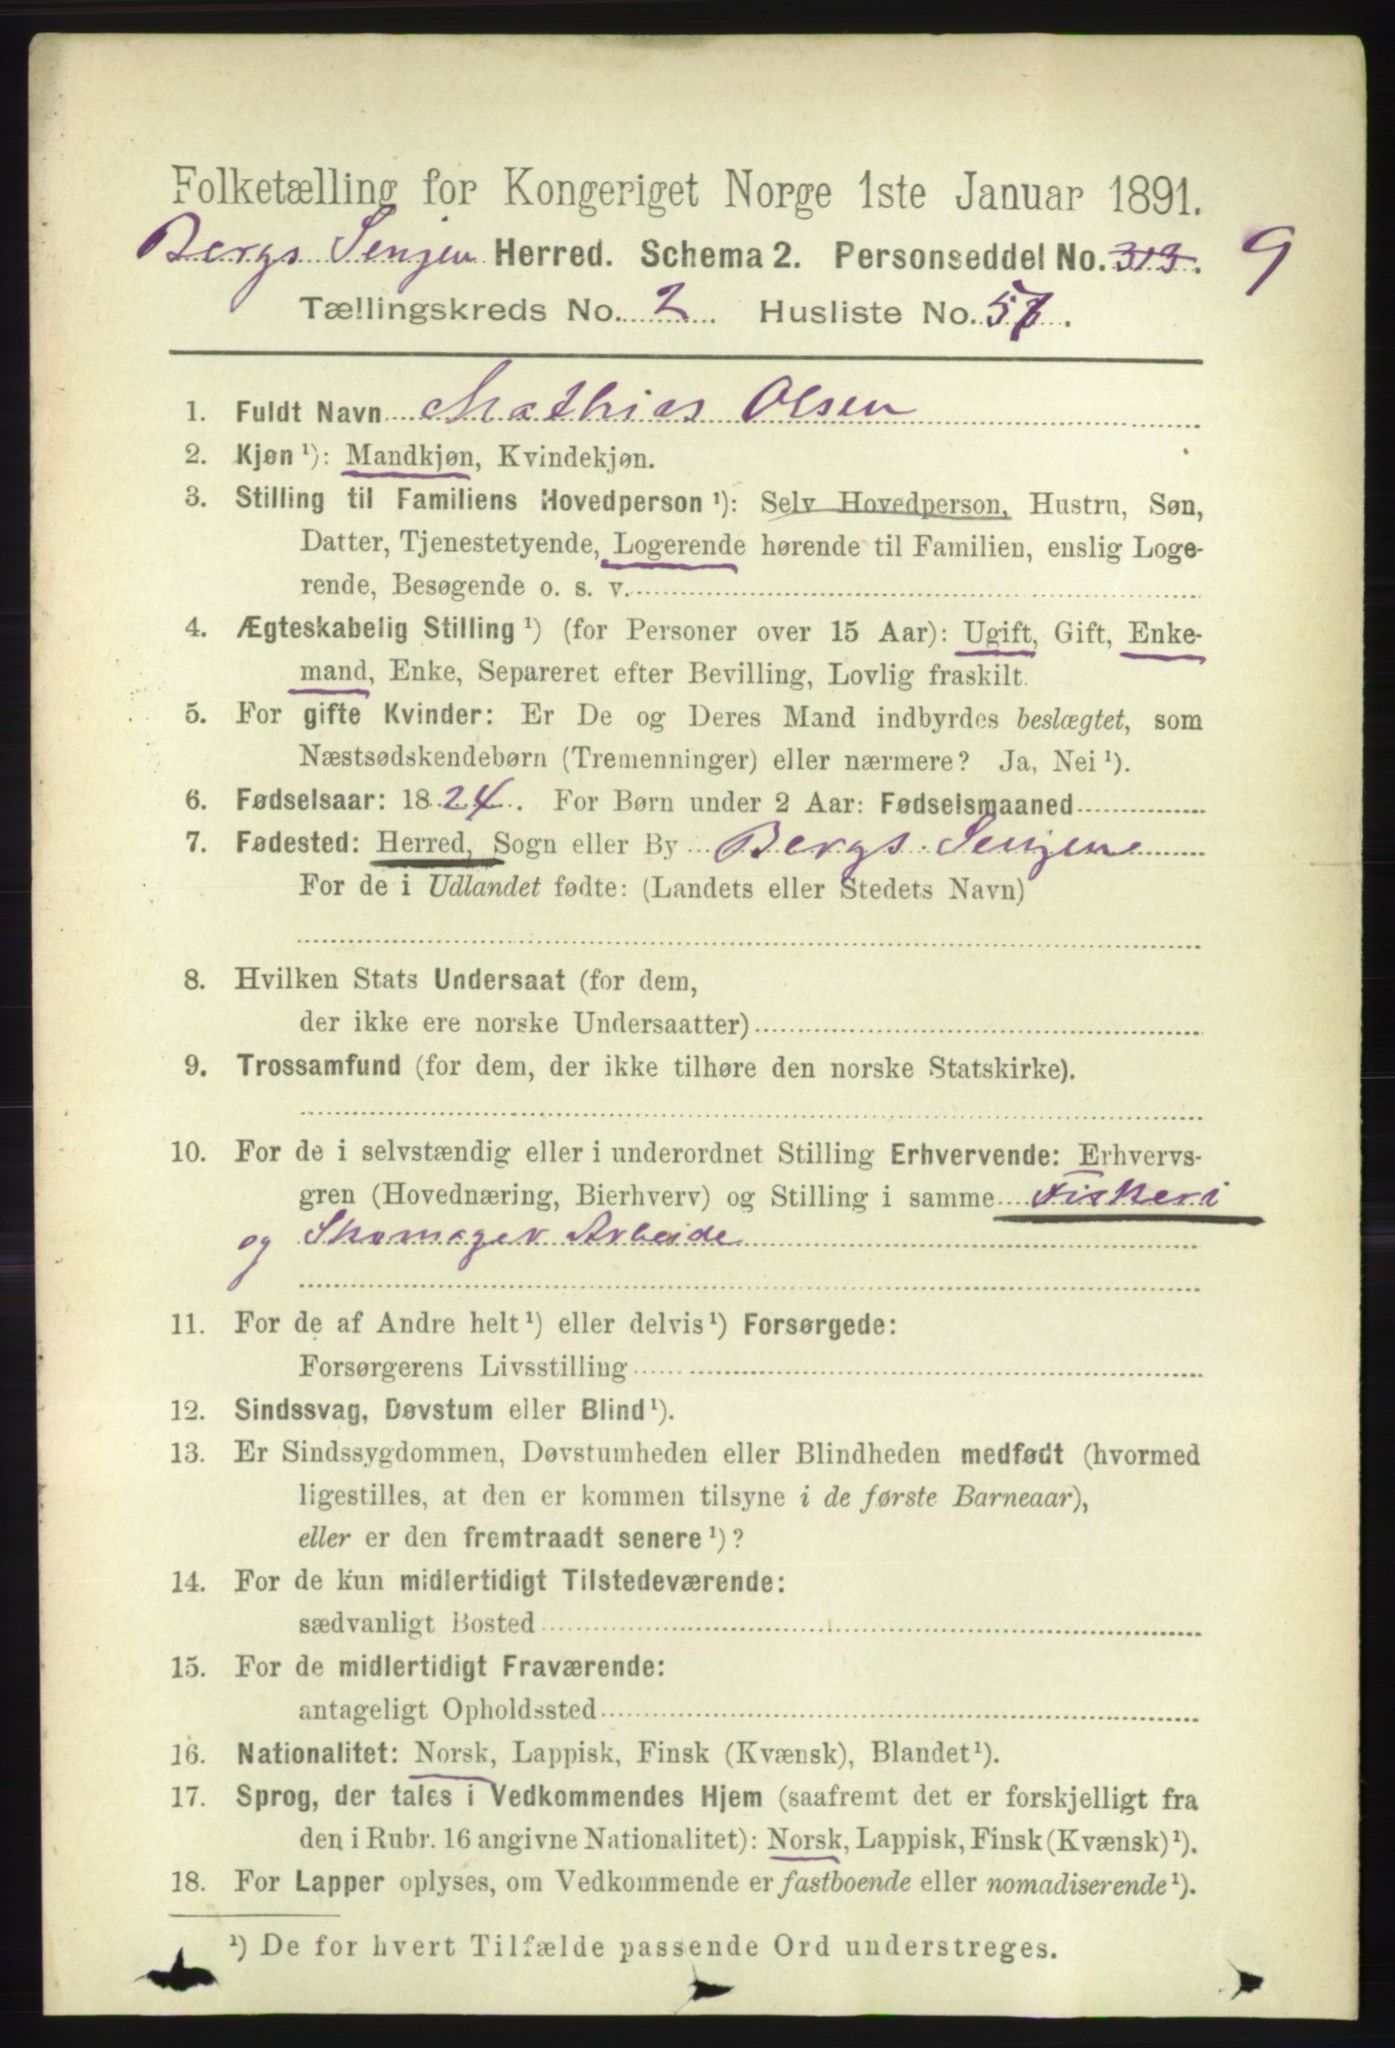 Folketælling for Kongeriget Norge 1ste Januar 1891.
Bergs Senjen Herred. Schema 2. Personseddel No. 313. 9
Tællingskreds No. 2 Husliste No. 57.
1. Fuldt Navn Mathias Olsen
2. Kjøn ¹): Mandkjøn, Kvindekjøn.
3. Stilling til Familiens Hovedperson ¹): Selv Hovedperson, Hustru, Søn,
Datter, Tjenestetyende, Logerende hørende til Familien, enslig Loge-
rende, Besøgende o. s. v.
4. Ægteskabelig Stilling ¹) (for Personer over 15 Aar): Ugift, Gift, Enke-
mand, Enke, Separeret efter Bevilling, Lovlig fraskilt.
5. For gifte Kvinder: Er De og Deres Mand indbyrdes beslægtet, som
Næstsødskendebørn (Tremenninger) eller nærmere? Ja, Nei ¹).
6. Fødselsaar: 1824. For Børn under 2 Aar: Fødselsmaaned
7. Fødested: Herred, Sogn eller By Bergs Senjen
For de i Udlandet fødte: (Landets eller Stedets Navn)
8. Hvilken Stats Undersaat (for dem,
der ikke ere norske Undersaatter)
9. Trossamfund (for dem, der ikke tilhøre den norske Statskirke).
10. For de i selvstændig eller i underordnet Stilling Erhvervende: Erhvervs-
gren (Hovednæring, Bierhverv) og Stilling i samme Fiskeri
og Skomager Arbeide
11. For de af Andre helt ¹) eller delvis ¹) Forsørgede:
Forsørgerens Livsstilling
12. Sindssvag, Døvstum eller Blind ¹).
13. Er Sindssygdommen, Døvstumheden eller Blindheden medfødt (hvormed
ligestilles, at den er kommen tilsyne i de første Barneaar),
eller er den fremtraadt senere ¹)?
14. For de kun midlertidigt Tilstedeværende:
sædvanligt Bosted
15. For de midlertidigt Fraværende:
antageligt Opholdssted
16. Nationalitet: Norsk, Lappisk, Finsk (Kvænsk), Blandet ¹).
17. Sprog, der tales i Vedkommendes Hjem (saafremt det er forskjelligt fra
den i Rubr. 16 angivne Nationalitet): Norsk, Lappisk, Finsk (Kvænsk) ¹).
18. For Lapper oplyses, om Vedkommende er fastboende eller nomadiserende ¹).
¹) De for hvert Tilfælde passende Ord understreges.